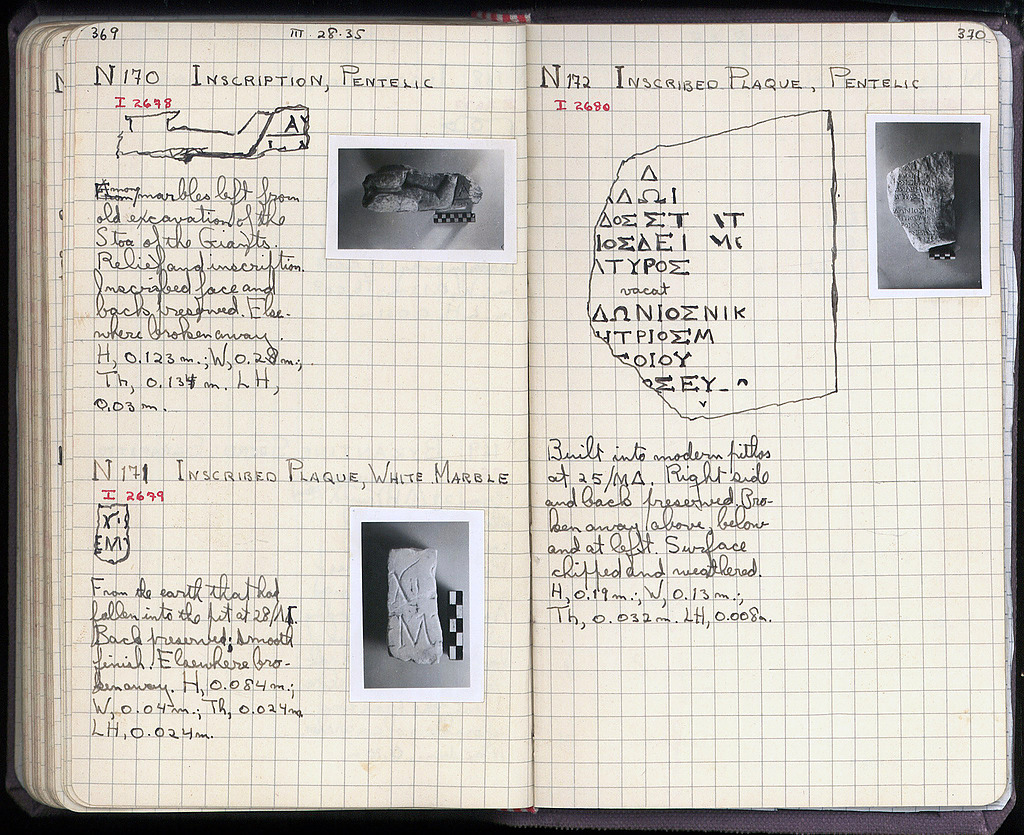 369
III · 28 · 35
N 170 INSCRIPTION, PENTELIC
I 2678
A
Among marbles left from
old excavation of the
Stoa of the Giants.
Relief and inscription.
Inscribed face and
back preserved. Else-
where broken away.
H, 0.123 m.; W, 0.28 m.;
Th, 0.134 m. LH,
0.03 m.
N 171 INSCRIBED PLAQUE, WHITE MARBLE
I 2679
EM
From the earth that had
fallen into the pit at 28/
Back preserved; smooth
finish. Elsewhere bro-
ken away. H, 0.084 m.;
W, 0.04 m.; Th, 0.024 m.
LH, 0.024 m.
370
N 172 INSCRIBED PLAQUE, PENTELIC
I 2680
Δ
ΔΩΙ
ΔΟΣΣΤ ΙΤ
ΙΟΣΔΕΙ
ΤΥΡΟΣ
vacat
ΔΩΝΙΟΣΝΙΚ
ΗΤΡΙΟΣΜ
ΟΙΟΥ
ΟΣΕΥ
v
Built into modern pithos
at 25/ΜΔ. Right side
and back preserved. Bro-
ken away above, below
and at left. Surface
chipped and weathered.
H, 0.19 m.; W, 0.13 m.;
Th, 0.032 m. LH, 0.008 m.